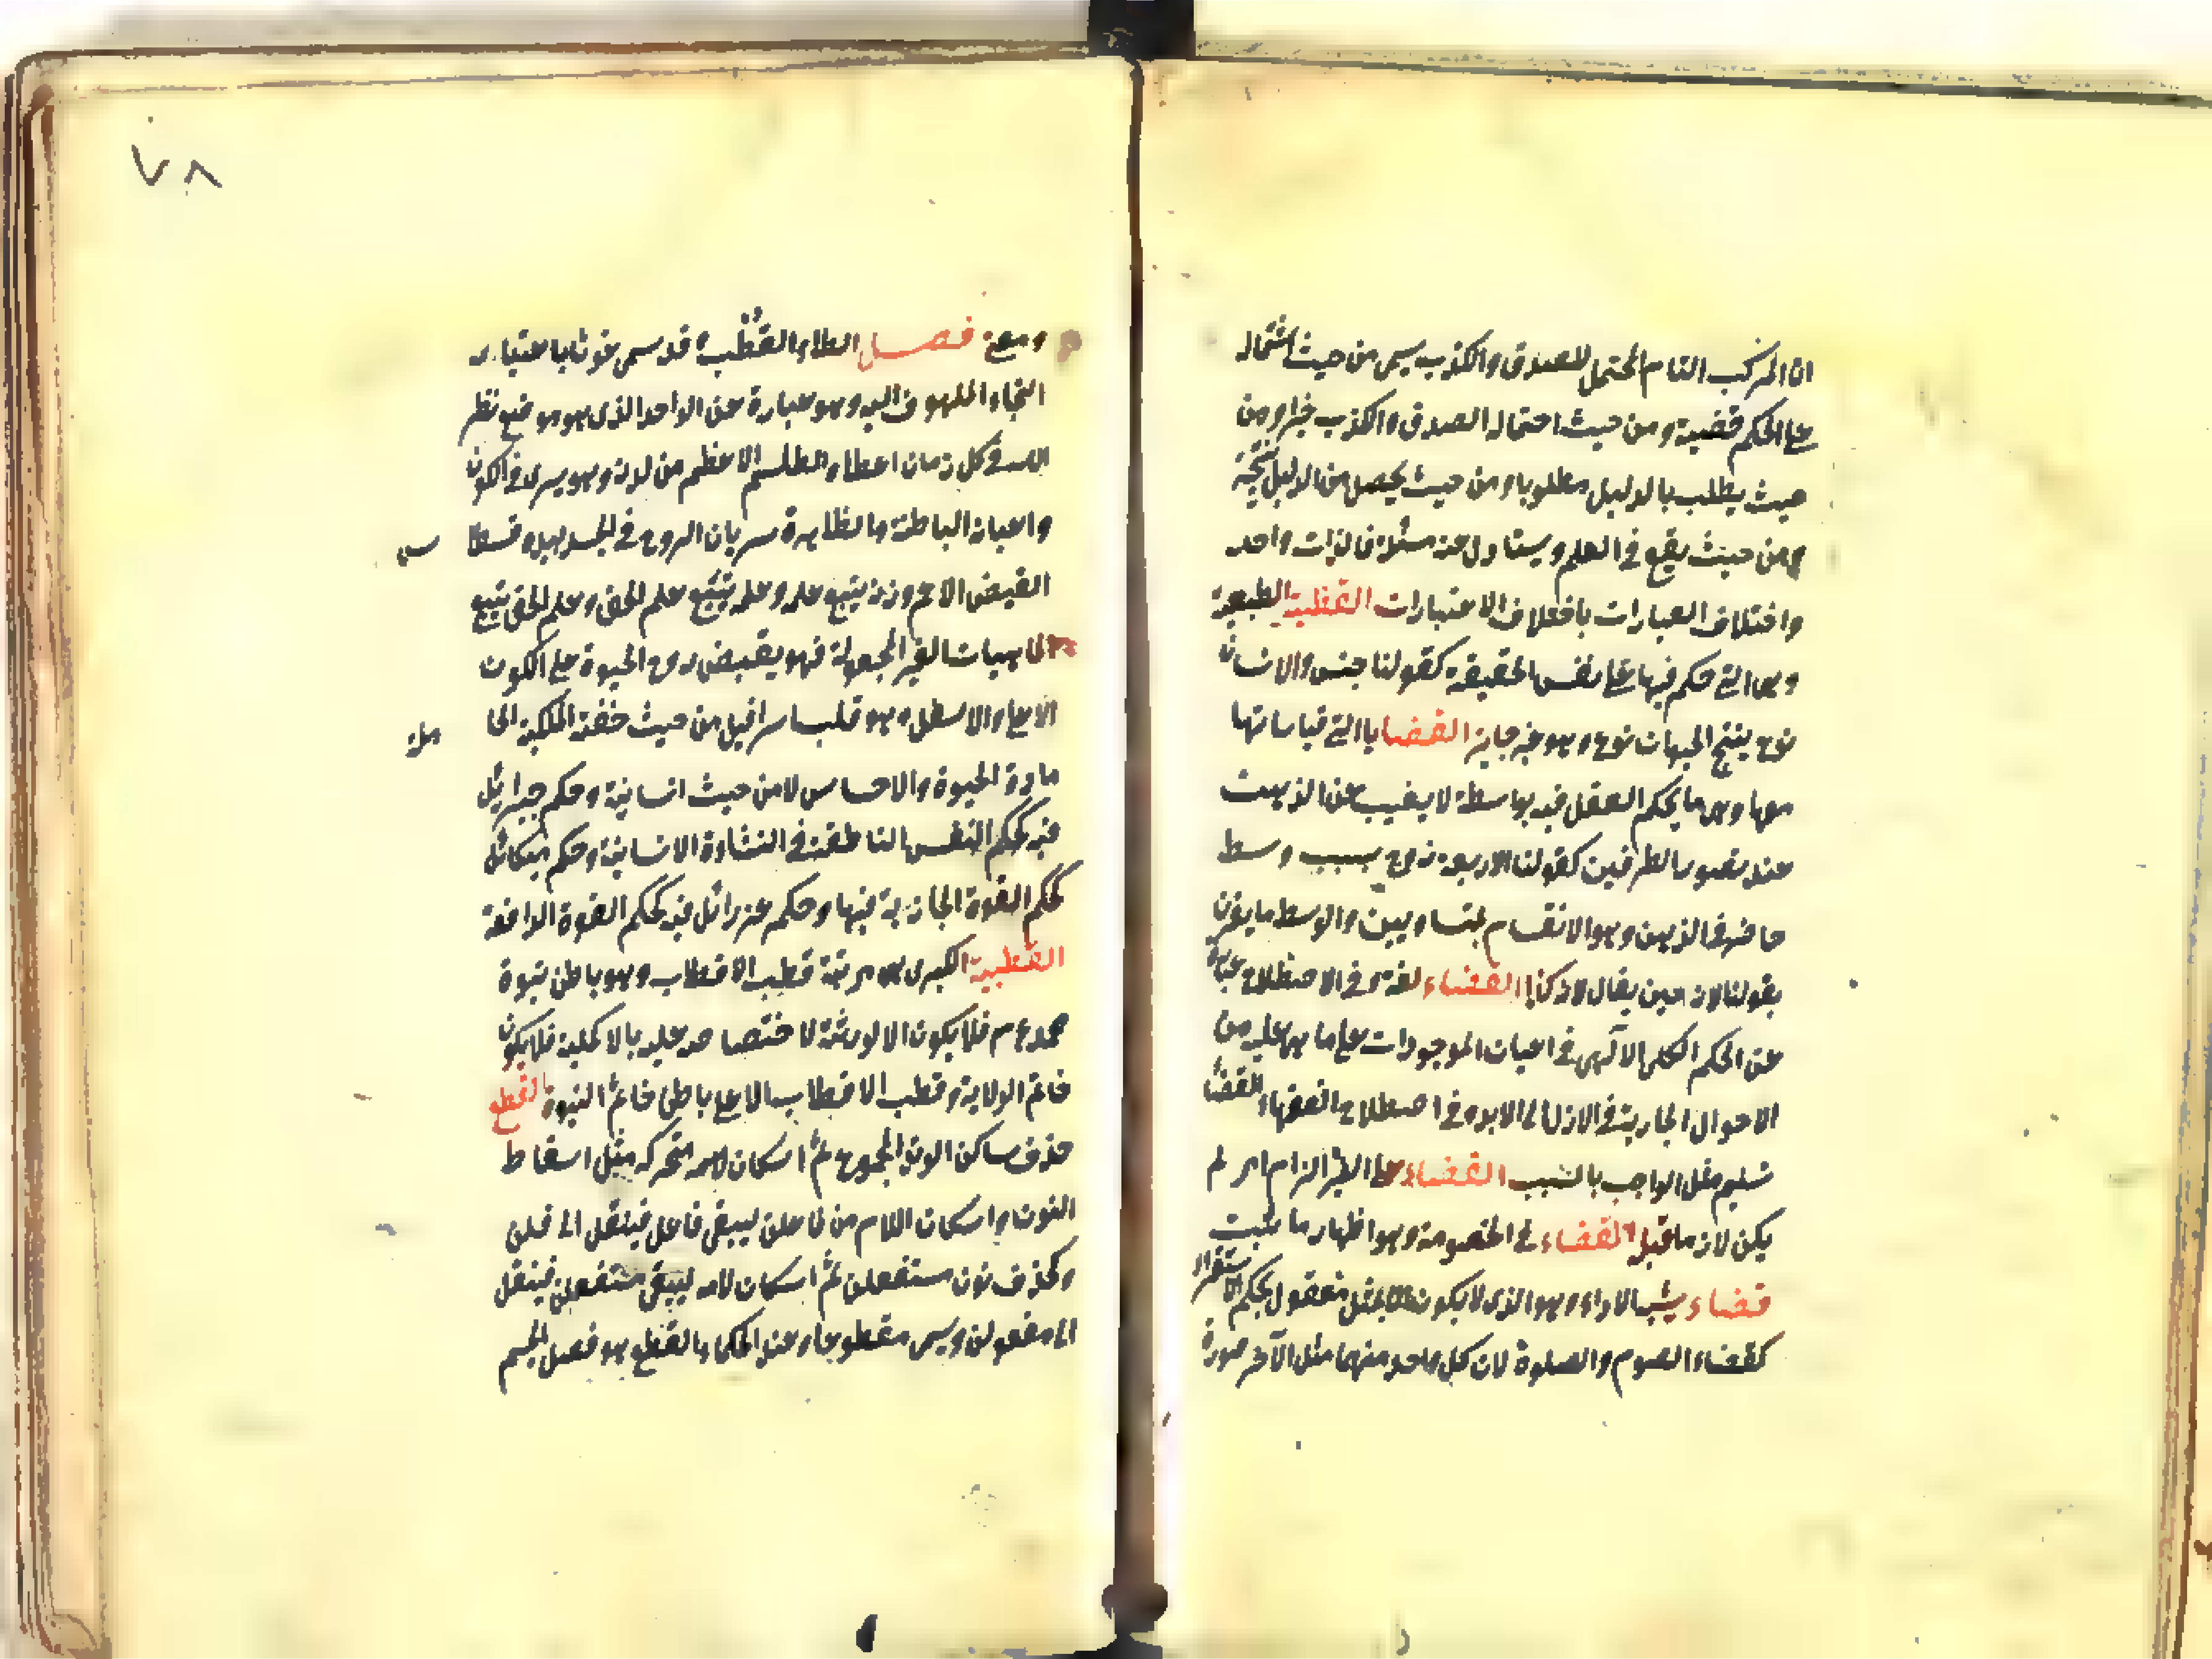 ان المركب التام المحتمل للصدق والكذب يسمى من حيث اشتماله
على الحكم قضية ومن حيث احتماله الصدق والكذب خبرا ومن
حيث يطلب بالدليل مطلوبا ومن حيث يحصل من الدليل نتيجة
ومن حيث يقع في العلم ويسئل عنه مسئلة فالذات واحدة
واختلاف العبارات باختلاف الاعتبارات القضية الطبيعية
وهى التى حكم فيها على نفس الحقيقة كقولنا جنس والانسان
نوع ينتج الحيوان نوع وهو غير جايز القضايا التى قياساتها
معها وهى ما يحكم العقل فيه بواسطة لا يغيب عن الذهن
عند تصور الطرفين كقولنا الاربعة زوج بسبب وسط
حاضر في الذهن وهو الانقسام بمتساويين والوسط ما يقرن
بقولنا لانه حين يقال لانه كذا القضاء لغة وفى الاصطلاح عبارة
عن الحكم الكلى الآلهى في اعيان الموجودات على ما هى عليه من
الاحوال الجارية في الازل الى الابد وفى اصطلاح الفقهاء القضاء
تسليم مثل الواجب بالسبب القضاء على الغير الزام امر لم
يكن لازما قبله القضاء في الخصومة وهو اظهار ما يثبت
قضاء يشبه الاداء وهو الذى لا يكون الا بمثل معقول بحكم الاستقراء
كقضاء الصوم والصلوة لان كل واحد منهما مثل الآخر صورة
٧٨
ومعنى فصل الطاء القطب قد سمى غوثا باعتبار
التجاء الملهوف اليه وهو عبارة عن الواحد الذى هو موضع نظر
الله في كل زمان اعطاه الطلسم الاعظم من لدنه وهو يسرى في الكون
واعيانه الباطنة والظاهرة سريان الروح في الجسد بيده قسطاس
الفيض الاعم وزنه يتبع علمه وعلمه يتبع علم الحق وعلم الحق يتبع
الماهيات الغير المجعولة فهو يفيض روح الحيوة على الكون
الاعلى والاسفل وهو قلب اسرافيل من حيث حصته الملكية الحاملة
مادة الحيوة والاحساس لا من حيث انسانيته وحكم جبرائيل
فيه كحكم النفس الناطقة في النشاءة الانسانية وحكم ميكائيل
كحكم القوة الجاذبة فيها وحكم عزرائل فيه كحكم القوة الدافعة
القطبية الكبرى هى مرتبة قطب الاقطاب وهو باطن نبوة
محمد عم فلا يكون الا لورثته لاختصاصه عليه بالاكملية فلا يكون
خاتم الولاية وقطب الاقطاب الا على باطن خاتم النبوة القطع
حذف ساكن الوتد المجموع ثم اسكان متحركه مثل اسقاط
النون واسكان اللام من فاعلن ليبقى فاعل فينقل الى فعلن
وكحذف نون مستفعلن ثم اسكان لامه ليبقى مستفعل فينقل
الى مفعولن ويسمى مقطوعا وعند الحكماء القطع هو فصل الجسم